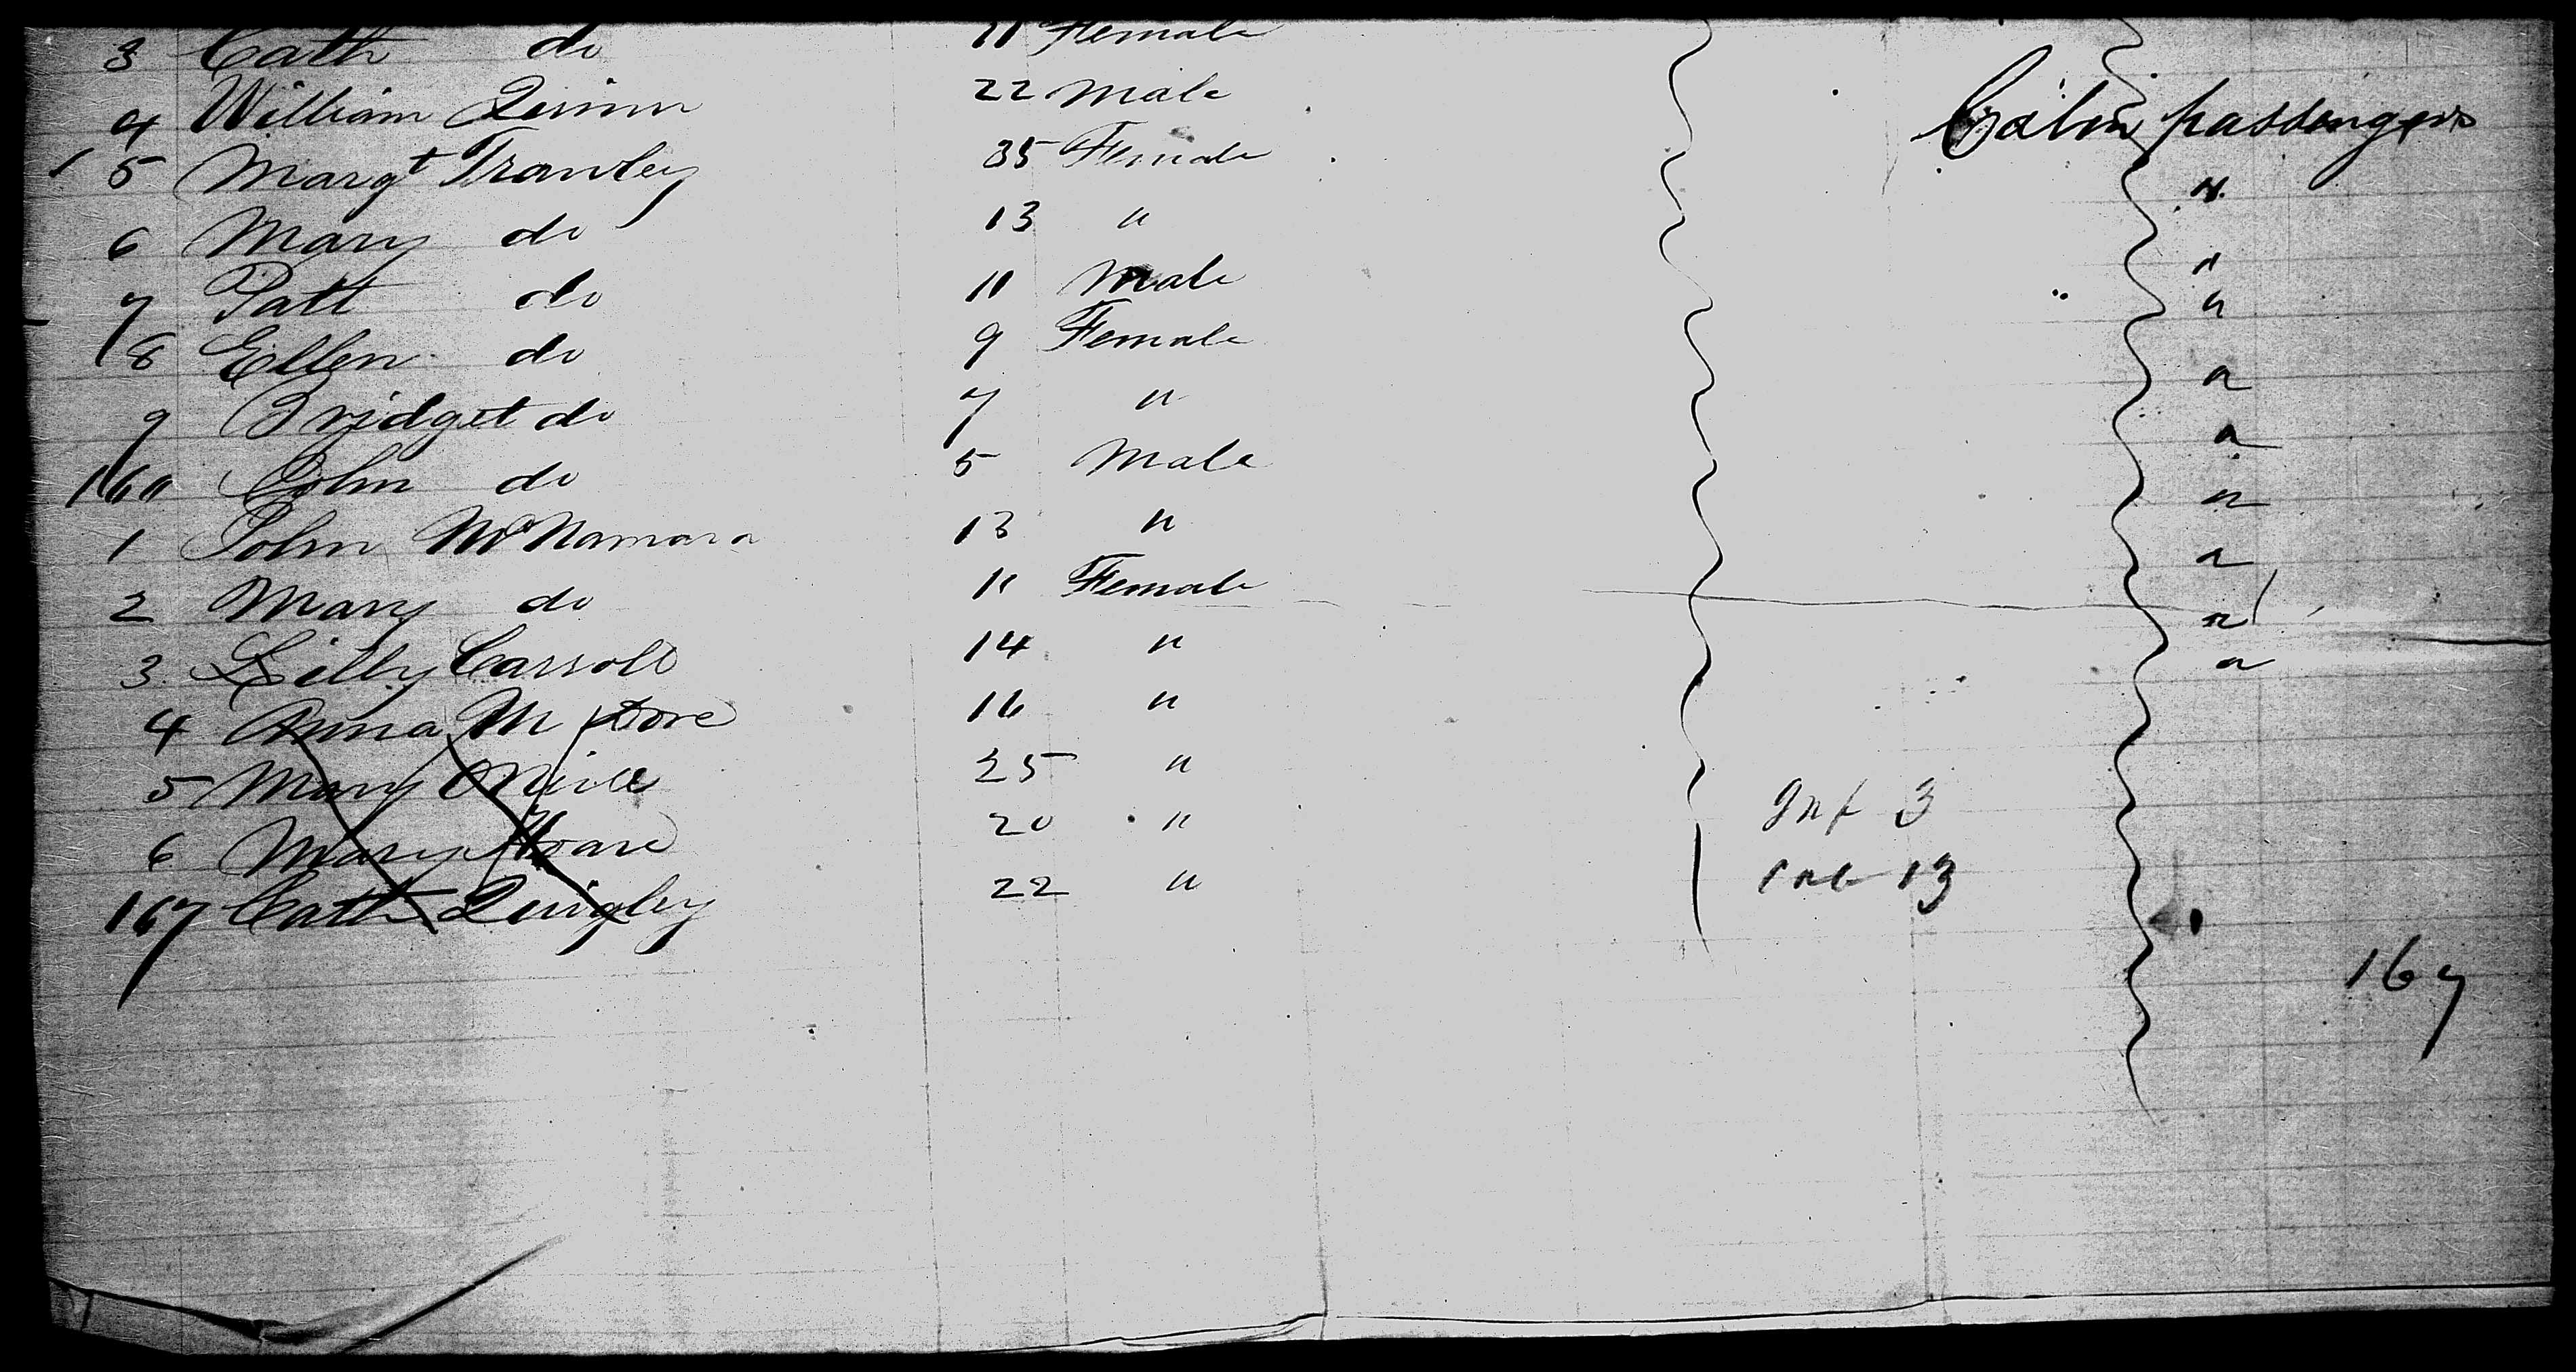 3 Cath do 11 Female
4 William Quinn 22 Male Cabin passengers
5 Margt Trantey 35 Female "
6 Mary do 13 " "
7 Patt do 11 Male "
8 Ellen do 9 Female "
9 Bridget do 7 " "
160 John do 5 Male "
1 John McNamara 13 " "
2 Mary do 11 Female "
3 Lilly Carroll 14 " "
4 Anna M 16 "
5 Mary ONeill 25 "
6 Mary Hoare 20 " Inf 3
167 Cath Quigley 22 " 13
167